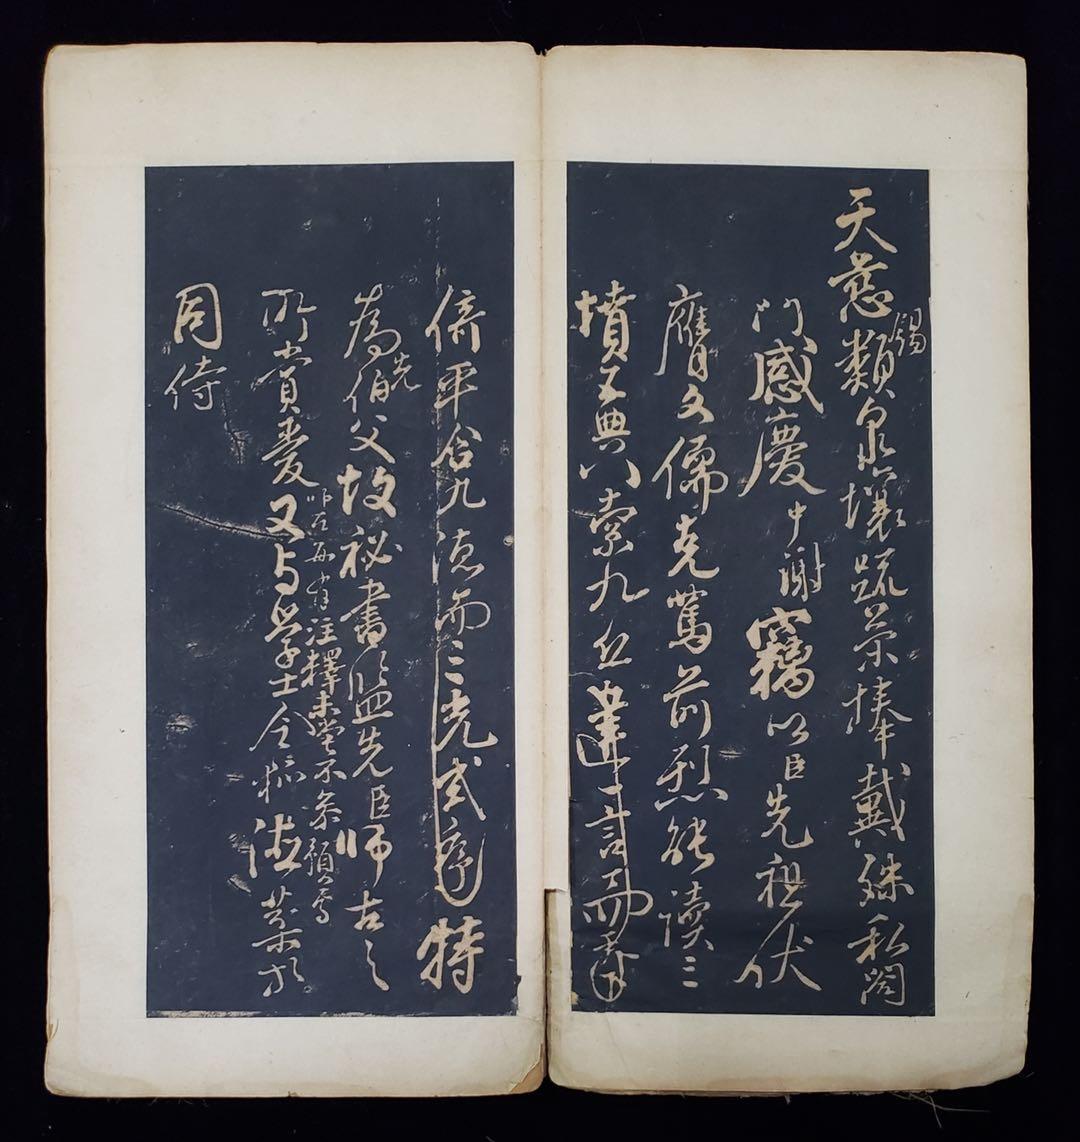 天慈錫類泉壤疏榮捧戴殊私闔
門感慶中謝竊以臣先祖伏
膺文儒克篤前烈能讀三
墳五典八索九丘達言
備平台九流而三光式序特
為先伯父故祕書監先臣師古之
所賞愛師古每有注釋未嘗不參預焉又與學士令狐德棻等
同侍